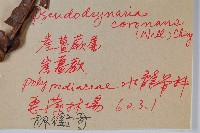 pseudodrynaria
coronans
(Wall) Ching
崖薑蕨屬
崖薑蕨
polypodiaceae 水龍骨科
惠蓀林場 60.3.1